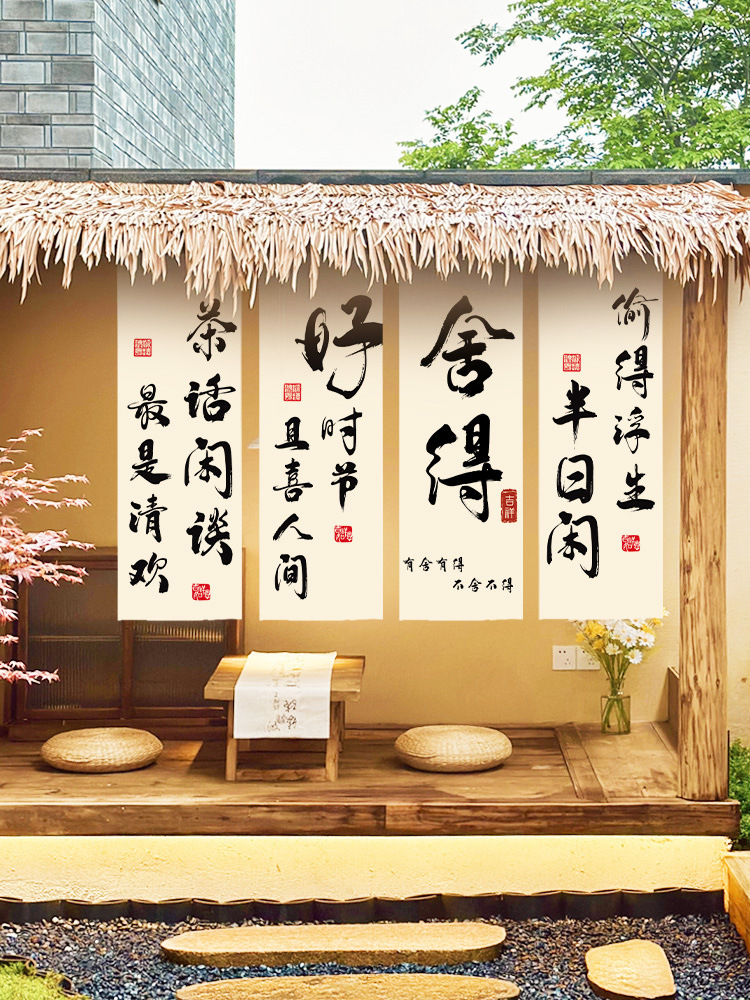 茶话闲谈
最是清欢
好时节
且喜人间
舍得
吉祥
有舍有得
不舍不得
偷得浮生
半日闲